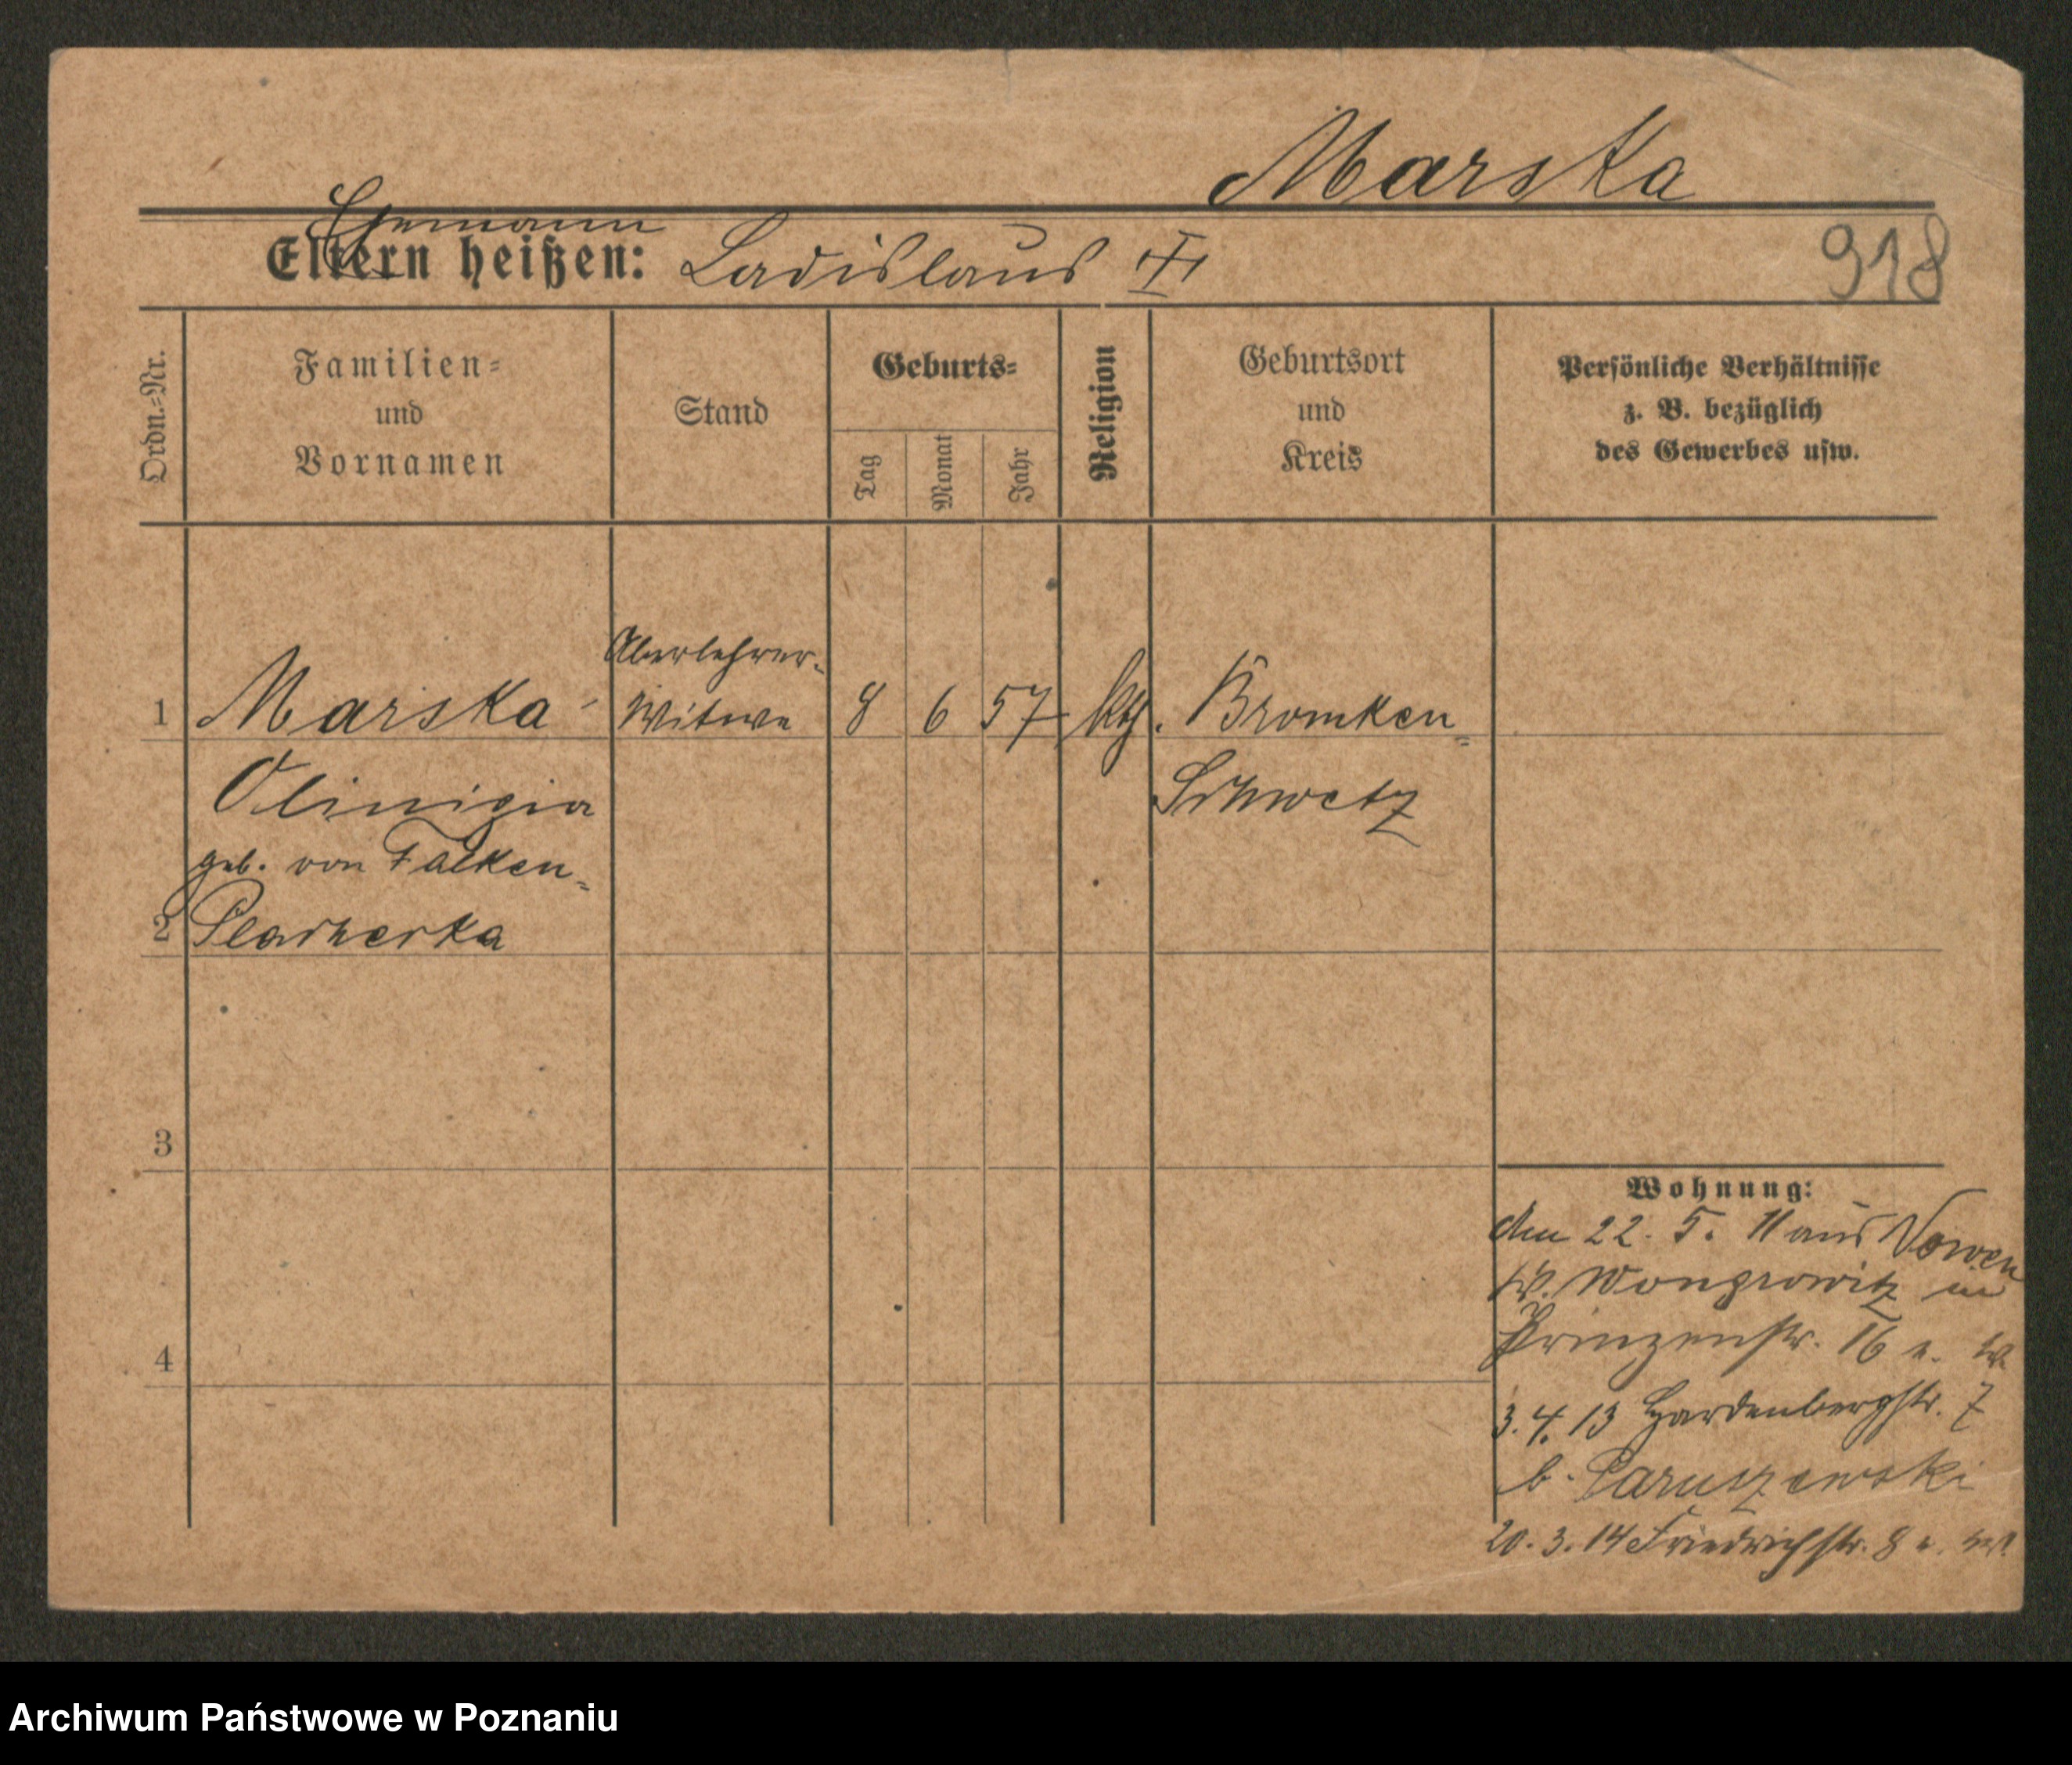 Marska
Ehemann
Eltern heißen: Ladislaus
918
Ordn.=Nr.
Familien=
und
Vornamen
Stand
Geburts=
Tag
Monat
Jahr
Religion
Geburtsort
und
Kreis
Persönliche Verhältnisse
z. B. bezüglich
des Gewerbes usw.
Oberlehrer-
1 Marska Witwe 8 6 57 kth. Bromken
Olinizia Schwetz
geb. von Falken-
2 Plachecka
3
Wohnung:
den 22. 5. 11 aus Nowen
Kr. Wongrowitz in
4 Prinzenstr. 16 e. W.
3. 4. 13 Hardenbergstr. 7
b. Paruszewski
20. 3. 14 Friedrichstr. 8 e. W.
Archiwum Państwowe w Poznaniu